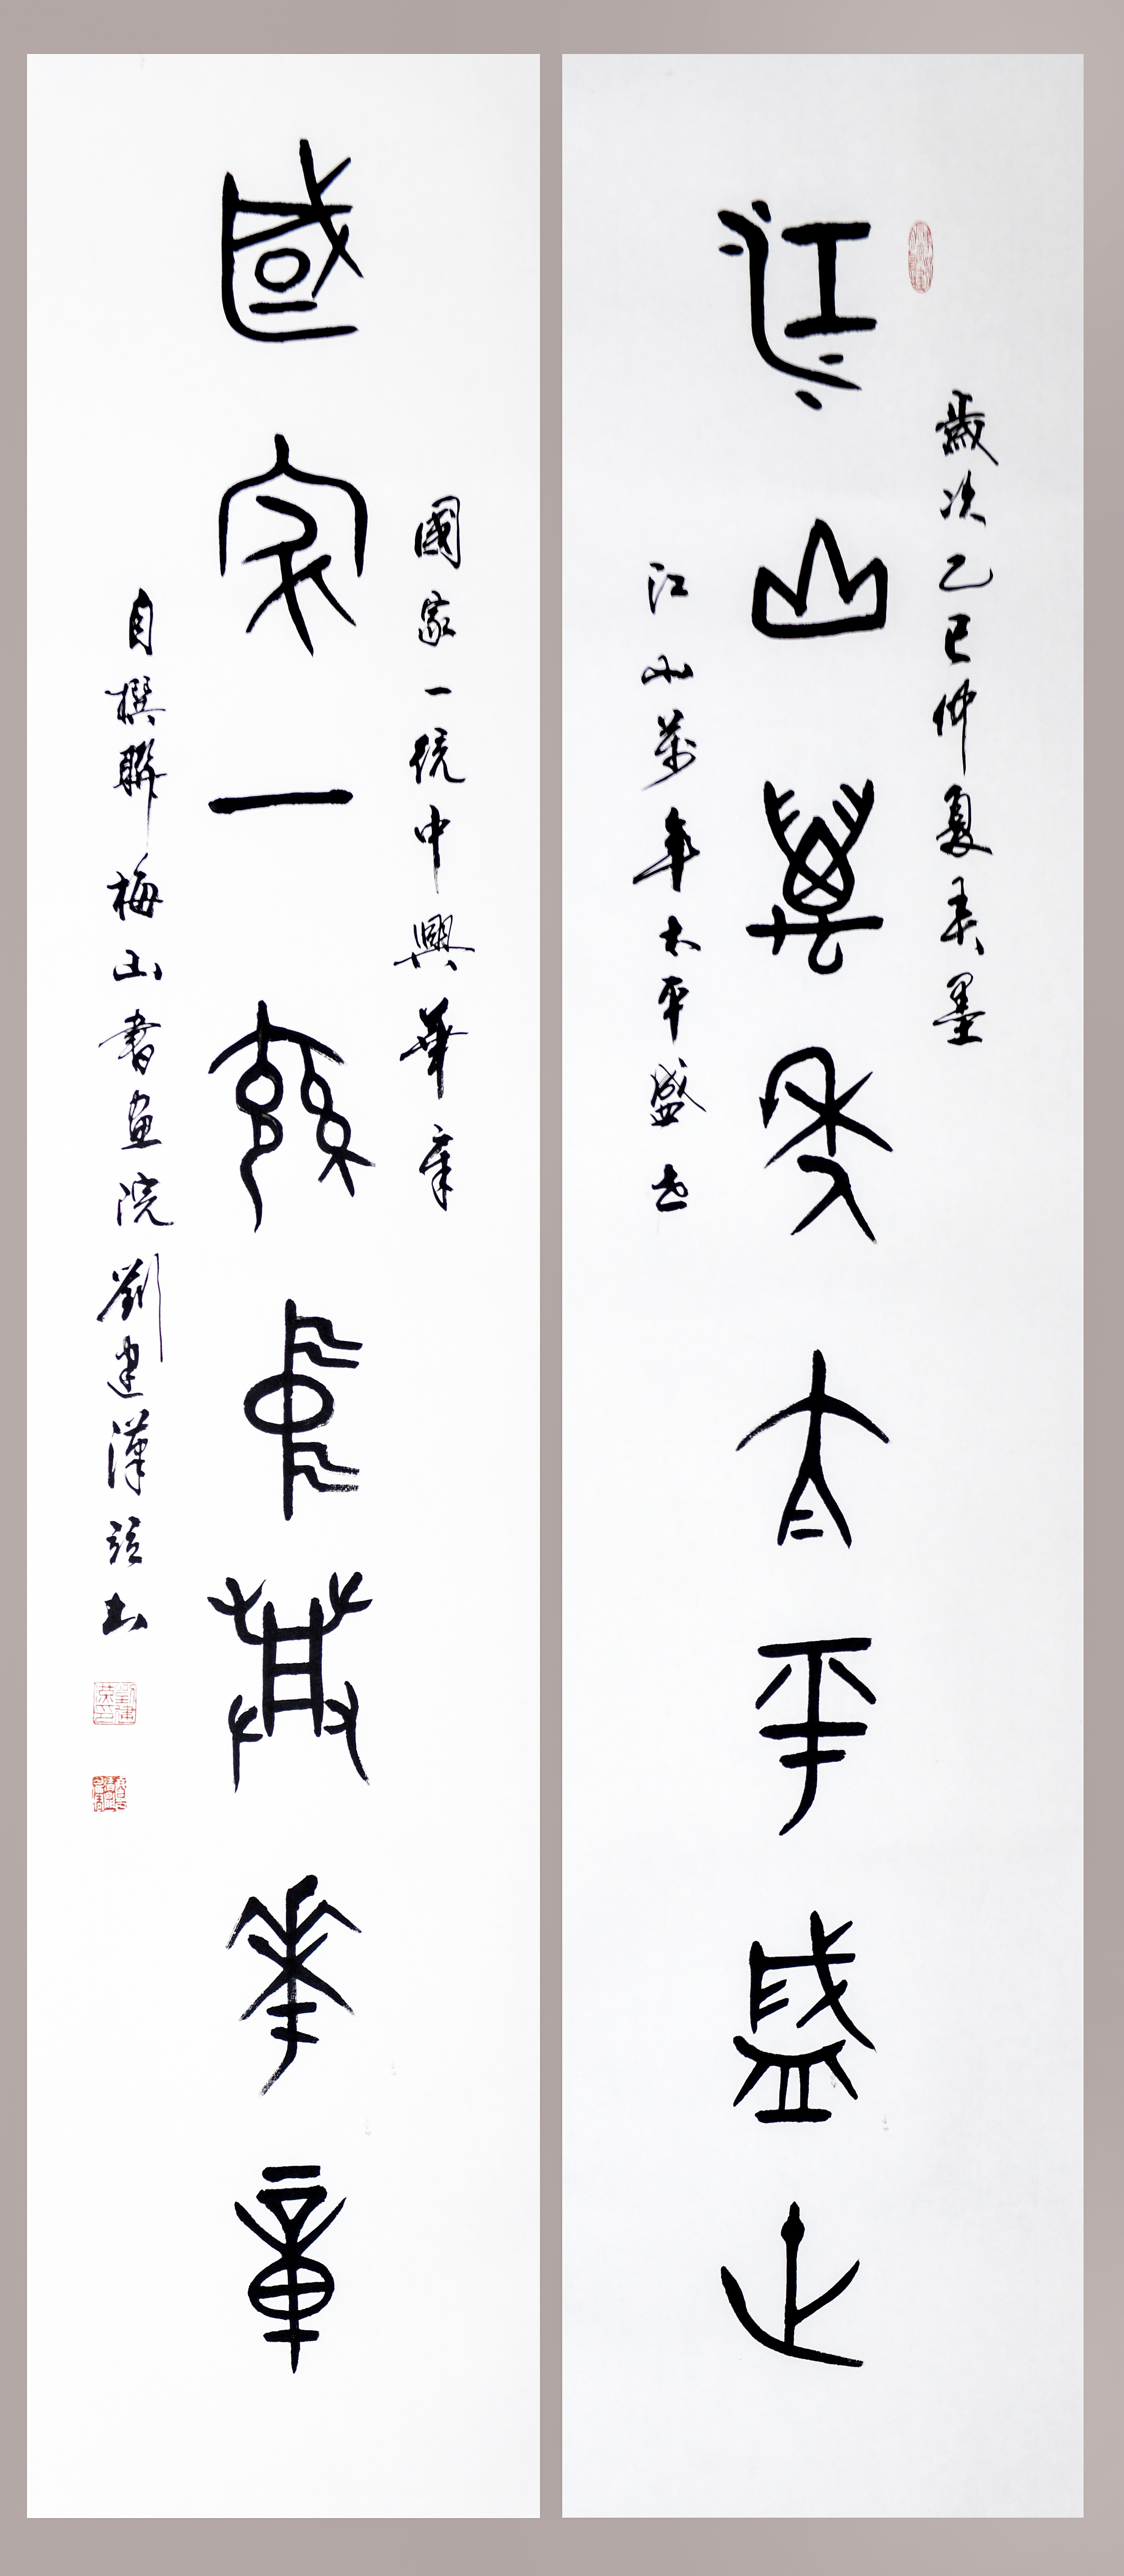 歲次乙巳仲夏弄墨
江山萬年太平盛世
江山萬年太平盛世
國家一統中興華章
國家一統中興華章
自撰聯梅山書畫院劉建漢題書